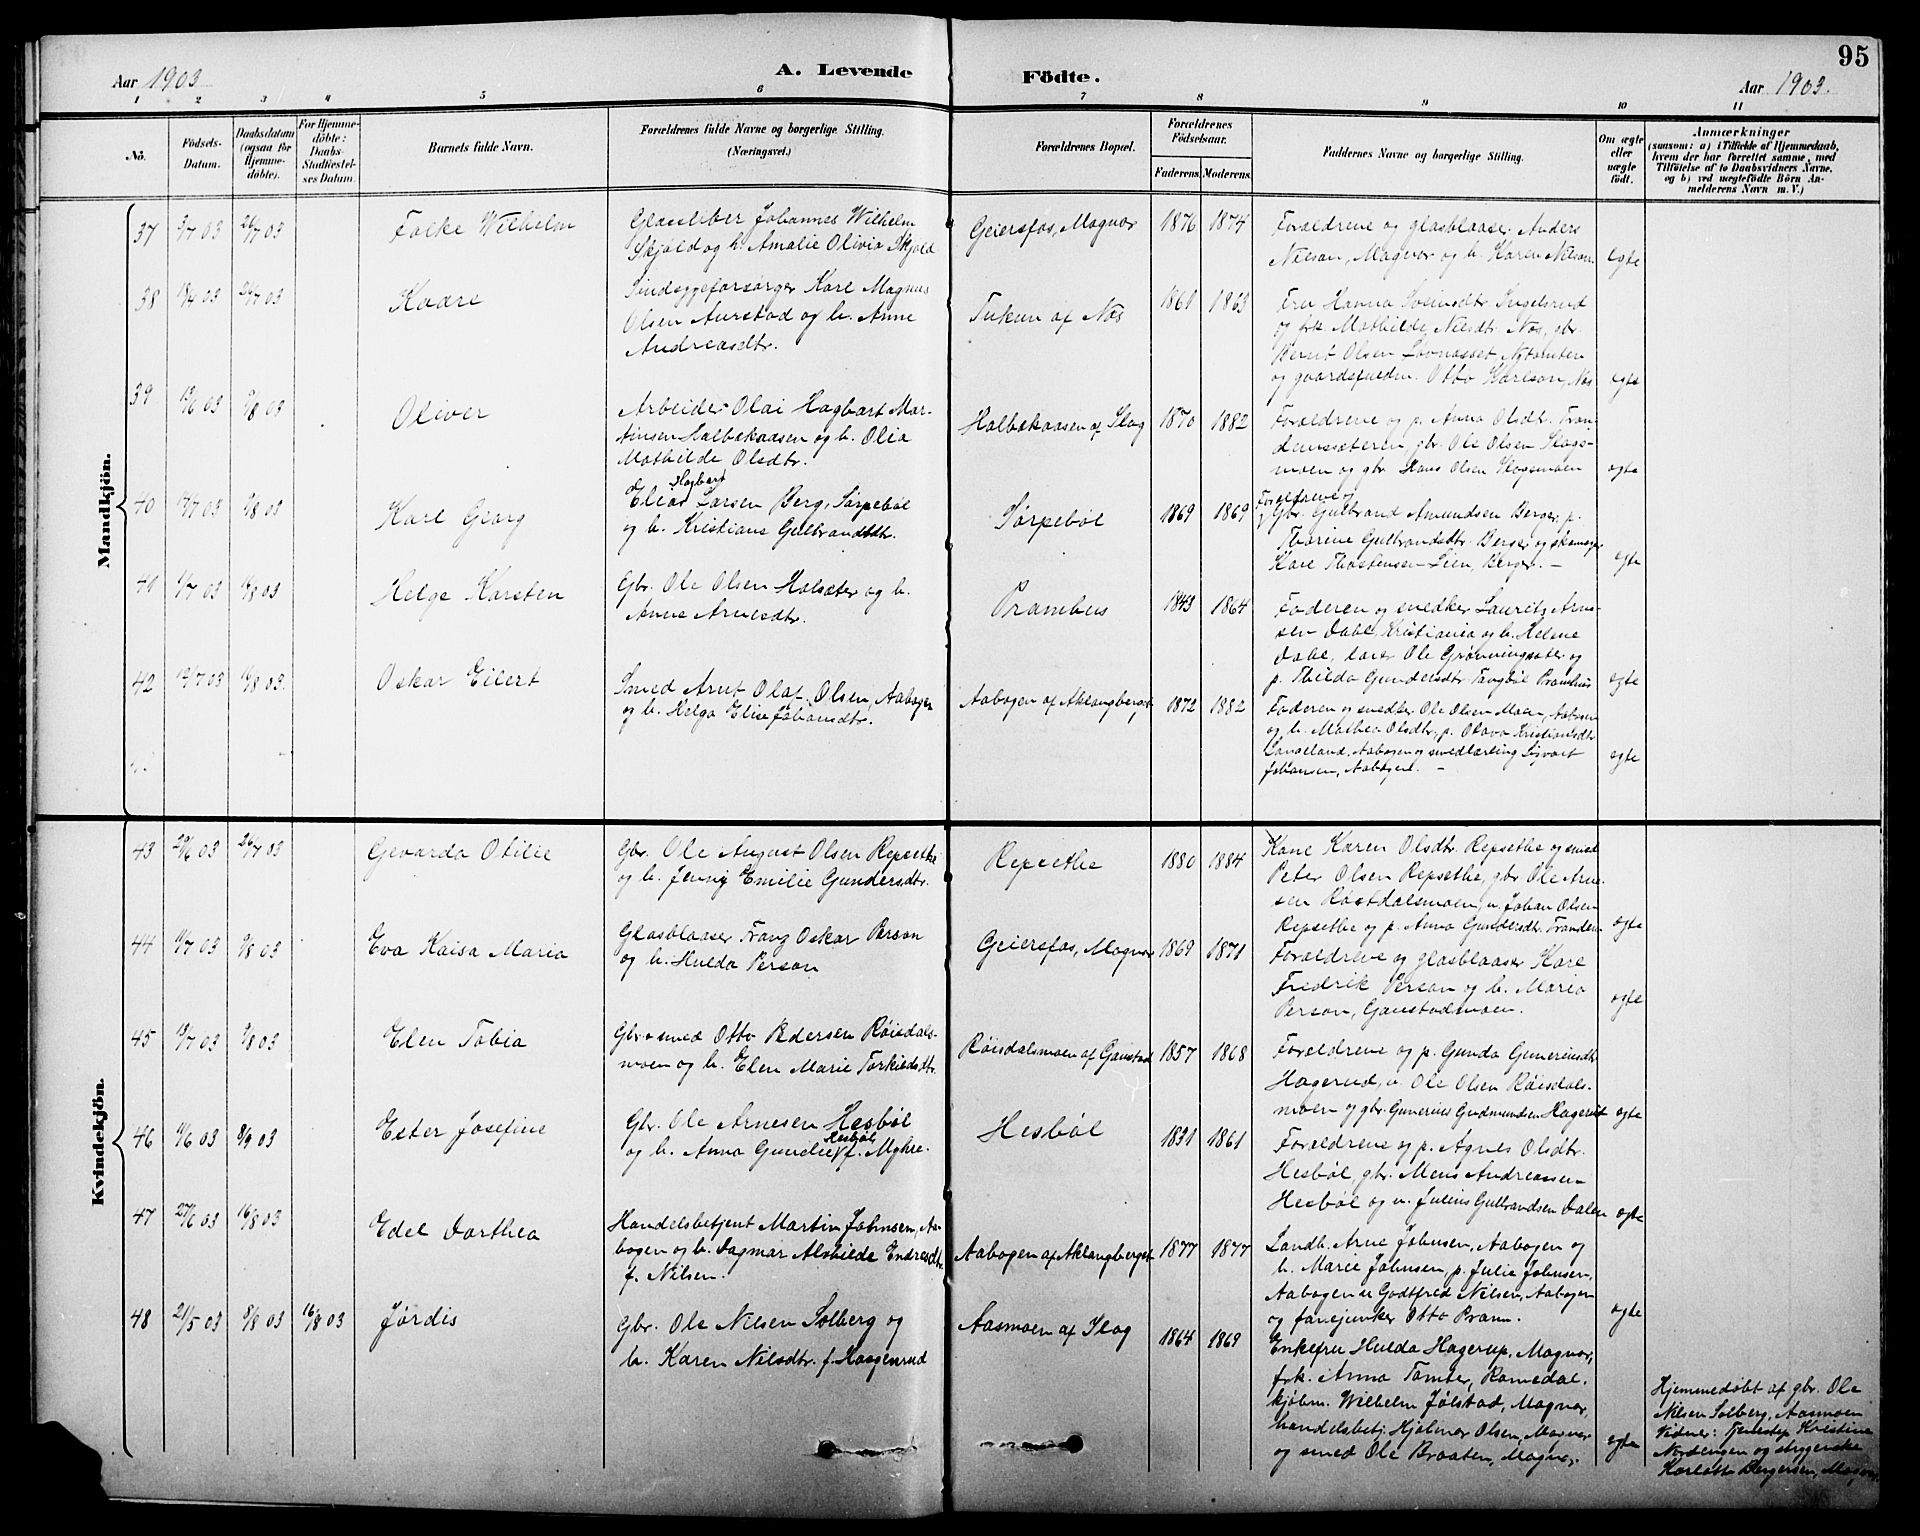 95
Aar 1903
A. Levende Födte.
Aar 1903.
1 2 3 4 5 6 7 8 9 10 11
Nö.
Födsels-
Datum.
Daabsdatum
(ogsaa for
Hjemme-
döbte).
For Hjemme-
döbte:
Daabs-
Stadfæstel-
ses Datum.
Barnets fulde Navn.
Forældrenes fulde Navne og borgerlige Stilling.
(Næringsvei.)
Forældrenes Bopæl.
Forældrenes
Födselsaar.
Faderens. Moderens.
Faddernes Navne og borgerlige Stilling.
Om ægte
eller
uægte
födt.
Anmærkninger
(saasom: a) i Tilfælde af Hjemmedaab,
hvem der har forrettet samme, med
Tilföielse af to Daabsvidners Navne,
og b) ved uægtefödte Börn An-
melderens Navn m. V.)
Mandkjön.
37 3/7 03 26/7 03
Falke Wilhelm
Glassliber Johannes Wilhelm
Skjöld og h. Amalie Olivia Skjold
Geiersfos, Magnor
1876 1874
Forældrene og glasblaaser Anders
Nilsen, Magnor og h. Karen Nilsen
egte
38 18/4 03 26/7 03
Kaare
Sindssygeforsørger Karl Magnus
Olsen Aurstad og h. Anne
Andreasdtr.
af Nos
1861 1863
Fru Hanna Sveinsdtr. Ingelsrud
og frk. Mathilde Nilsdtr. Nos, gbr.
Bernt Olsen Nytomten
og gaardsfuldm. Otto Karlson, Nos
egte
39 13/6 03 9/8 03
Oliver
Arbeider Olai Hagbart Mar-
tinsen Halbækaasen og h. Olia
Mathilde Olsdtr.
Halbækaasen af Slog
1870 1882
Forældrene og p. Anna Olsdtr. Tran-
demssæteren gbr. Ole Olsen Slogs-
moen og gbr. Hans Olsen Slogsmoen
egte
40 9/8 03
Karl Georg
Hagbart
Elias Larsen Berg, Sörpeböl
og h. Kristiane Gulbrandsdtr.
Sörpeböl
1869 1869
Forældrene og
Gbr. Gulbrand Amundsen Berger, p.
Thorine Gulbrandsdtr. Berger og skomager
Karl Thostensen Lien, Berger. —
egte
41 1/7 03 9/8 03
Helge Karsten
Gbr. Ole Olsen Holsæter og h.
Anne Arnesdtr.
Pramhus
1843 1864
Faderen og snedker Lauritz Arne-
sen Dahl, Kristiania og h. Helene
Dahl, lærer Ole Grönningsæter og
p. Thilda Gundersdtr. Tangböl Pramhus
egte
42 12/7 03 16/8 03.
Oskar Eilert
Smed Arnt Olaf Olsen, Aabogen
og h. Helga Elise Johansdtr.
Aabogen af Aklangberget
1872 1882
Faderen og snedker Ole Olsen Moen, Aabogen
og h. Mathea Olsdtr., p. Olava Kristiansdtr.
Langeland, Aabogen og smedlærling Sigvart
Johansen, Aabogen. —
egte
Kvindekjön.
43 29/6 03 26/7 03
Gevarda Otilie
Gbr. Ole August Olsen Repsethe
og h. Jenny Emilie Gundersdtr.
Repsethe
1880 1884
Kone Karen Olsdtr. Repsethe og smed
Peter Olsen Repsethe, gbr. Ole Arne-
sen Röisdalsmoen, u. Johan Olsen
Repsethe og p. Anna Gundersdtr. Tranden
egte
44 1/7 03 9/8 03
Eva Kaisa Maria
Glasblaaser Franz Oskar Person
og h. Hulda Person
Geiersfos, Magnor
1869 1871
Forældrene og glasblaaser Karl
Fredrik Person og h. Maria
Person, Gaustadmoen.
egte
45 19/7 03 9/8 03
Elen Tobia
Gbr. o smed Otto Pedersen Röisdals-
moen og h. Elen Marie Torkildsdtr.
Röisdalsmoen af Gaustad
1857 1868
Forældrene og p. Gunda Gunerinsdtr.
Hagerud, u. Ole Olsen Röisdals-
moen og gbr. Gunerius Gudmundsen Hagerud
egte
46 11/6 03 8/9 03
Ester Josefine
Gbr. Ole Arnesen Hesböl
og h. Anna Gundie Hesböl f. Myhre.
Hesböl
1831 1861
Forældrene og p. Agnes Olsdtr.
Hesböl, gbr. Mens Andreassen
Hesböl og u. Julius Gulbrandsen Dalen
egte
47 27/6 03 16/8 03
Edel Dorthea
Handelsbetjent Martin Johnsen, Aa-
bogen og h. Dagmar Alshilde Endresdtr.
f. Nilsen.
Aabogen af Aklangberget
1877 1877
Landh. Arne Johnsen, Aabogen og
h. Marie Johnsen, p. Julie Johnsen,
Aabogen u Godtfred Nilsen, Aabogen
og fanejunker Otto Bramn.
egte
48 21/5 03 8/8 03 16/8 03
Jördis
Gbr. Ole Nilsen Solberg og
h. Karen Nilsdtr. f. Haagenrud
Aasmoen af Slog
1864 1869
Enkefru Hulda Hagerup, Magnor,
frk. Anna Tomter, Romedal.
kjöbm. Wilhelm Jölstad, Magnor,
handelsbetj. Hjalmar Olsen, Magnor
og smed Ole Braaten, Magnor.
egte
Hjemmedöbt af gbr. Ole
Nilsen Solberg, Aasmoen
Vidner: Tjenestep. Kristine
Nordengen og strygerske
Karlotte Bergersen, Magnor